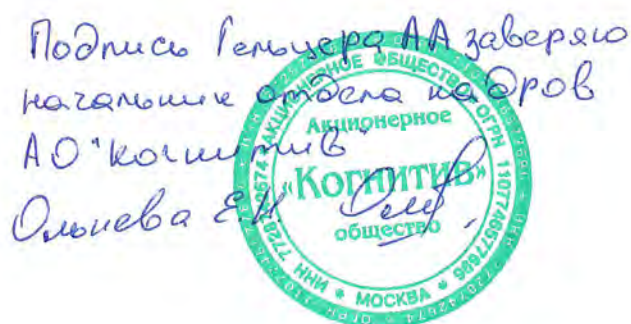 Подпись Гельцера АА заверяю
начальник отдела кадров
АО "Когнитив"
Е.Н.
АКЦИОНЕРНОЕ ОБЩЕСТВО * ОГРН 1107746577686 * МОСКВА * ИНН 7728742674
Акционерное
«Когнитив»
общество